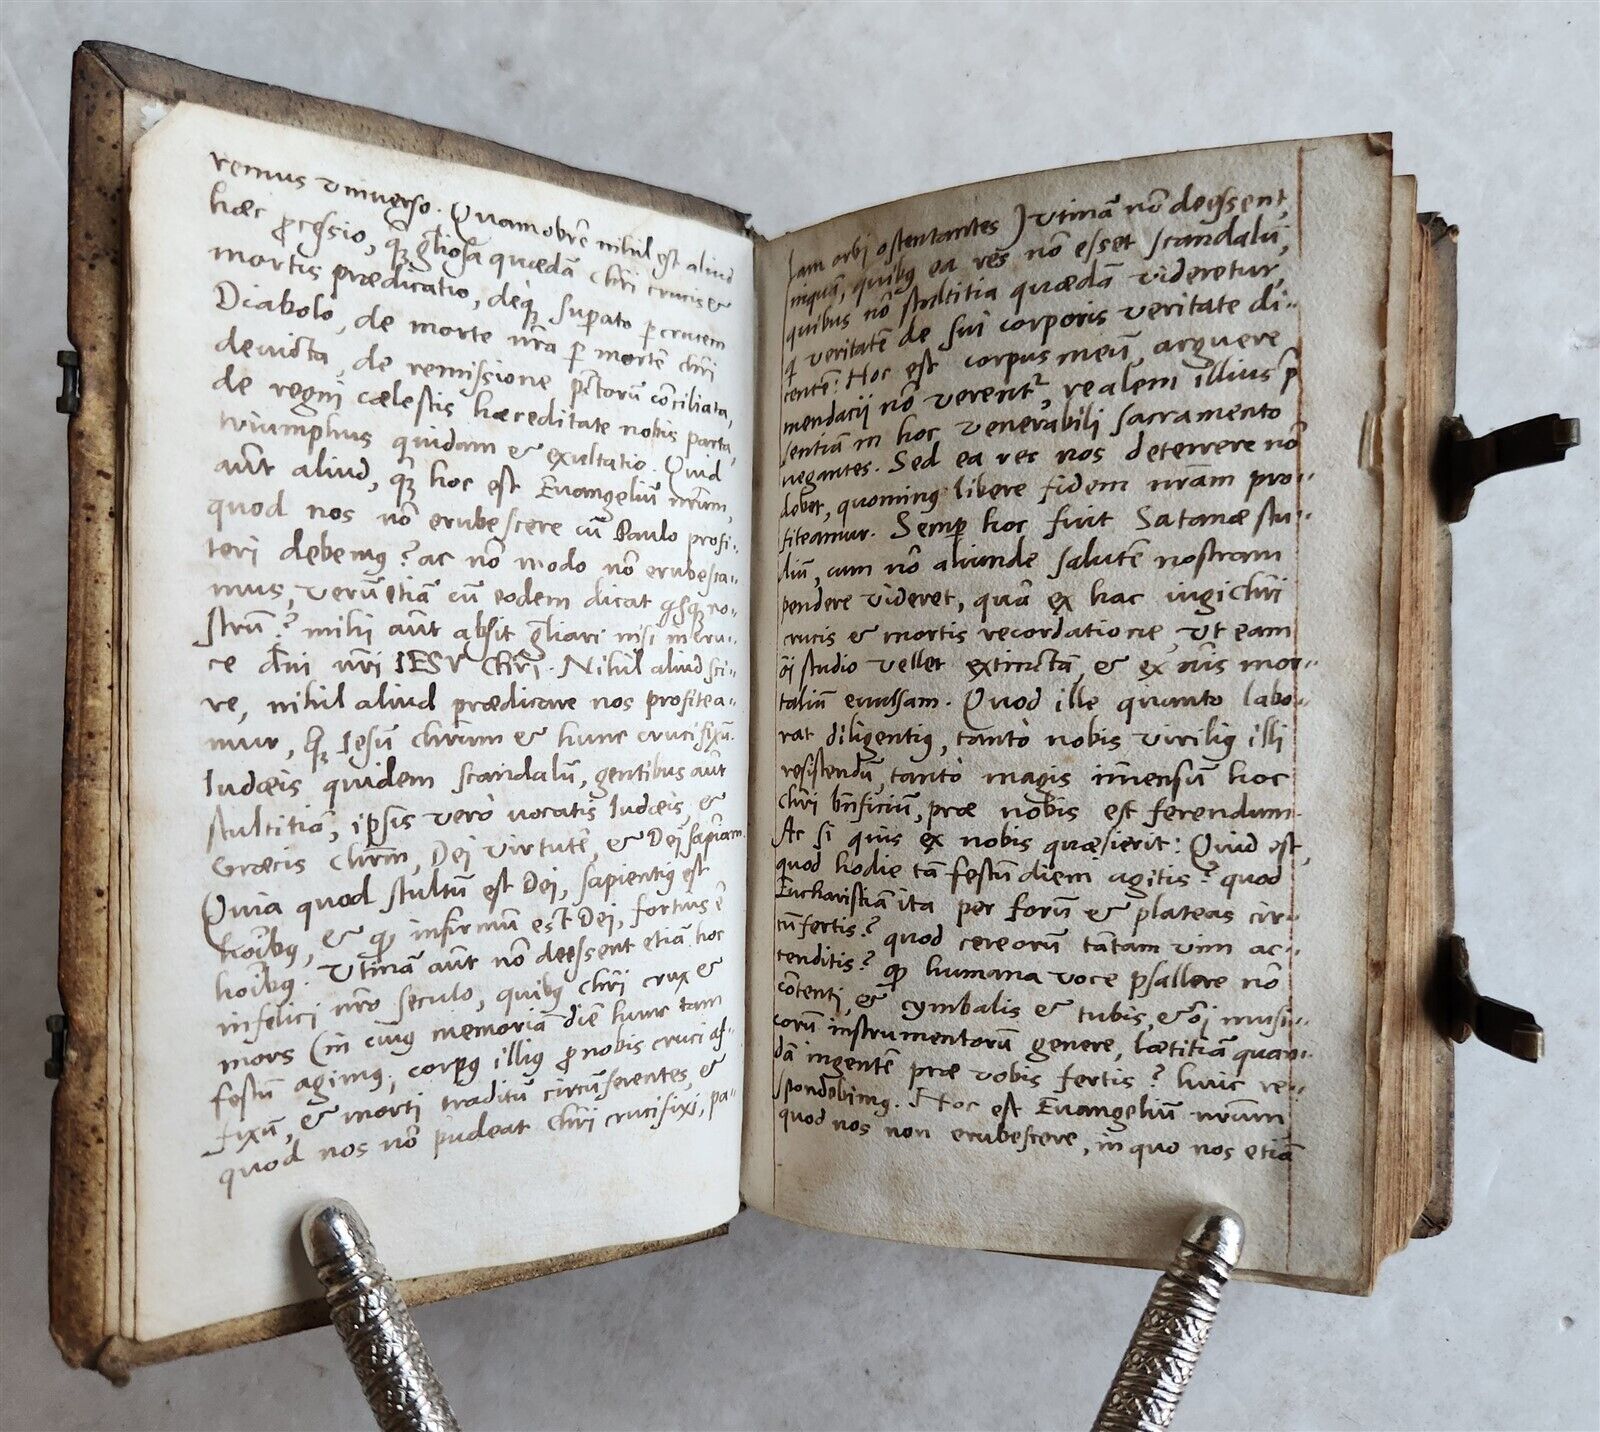 remus vniuerso. Quamobrē nihil est aliud
hæc ꝓcessio, q̄ gl̄iosa quædā chr̄i crucis &
mortis prædicatio, deq̃ supato p̱ crucem
Diabolo, de morte nr̄a p̱ mortē chr̄i
deuicta, de remissione pctorū cōciliata,
de regni cælestis hæreditate nobis parta,
triumphus quidam & exultatio. Quid
aūt aliud, q̄ hoc est Euangeliū nr̄um,
quod nos nō erubescere cū Paulo profi-
teri debemꝰ? ac nō modo nō erubesca-
mus, verūetiā cū eodem dicat qsq̃ no-
strū? mihi aūt absit gl̄iari nisi in cru-
ce dn̄i nr̄i IESV chr̄i. Nihil aliud sci-
re, nihil aliud prædicare nos profitea-
mur, q̄ Iesū chr̄um & hunc crucifixū.
Iudæis quidem scandalū, gentibus aūt
stultitiā, ipsis verò uocatis Iudæis, &
Græcis chr̄m, Dei virtutē, & Dei sapiam.
Quia quod stultū est Dei, sapientiꝰ est
hoībꝰ, & qd infirmū est Dei, fortius ē
hoībꝰ. Vtinā aūt nō deessent etiā hoc
infelici nr̄o seculo, quibꝰ chr̄i crux &
mors (in cuiꝰ memoriā diē hunc tam
festū agimꝰ, corpꝰ illiꝰ ꝓ nobis cruci af-
fixū, & morti traditū circūferentes, &
quod nos nō pudeat chr̄i crucifixi, pa-
lam orbi ostentantes) vtinā nō deessent,
inquā, quibꝰ ea res nō esset scandalū,
quibus nō stultitia quædā videretur,
q veritatē de sui corporis veritate di-
centē: Hoc est corpus meū, arguere
mendacii nō verentr, realem illius p̄
sentiā in hoc venerabili sacramento
negantes. Sed ea res nos deterrere nō
debet, quominꝰ libere fidem nr̄am pro-
fiteamur. Semp̱ hoc fuit Satanæ stu-
diū, cum nō aliunde salutē nostram
pendere videret, quā ex hac iugi chr̄i
crucis & mortis recordatione, vt eam
oī studio vellet extinctā, & ex aīs mor-
talium euulsam. Quod ille quanto labo-
rat diligentiꝰ, tantò nobis viriliꝰ illi
resistendū, tantò magis īmensū hoc
chr̄i bn̄ficium, præ nobis est ferendum.
Ac si quis ex nobis quæsierit: Quid est,
quod hodie tā festū diem agitis? quod
Eucharistiā ita per forū & plateas cir-
cūfertis? quod cereorū tātam vim ac-
cenditis? qd humana voce psallere nō
cōtenti, & cymbalis & tubis, & oī musi-
corū instrumentorū genere, lætitiā quan-
dā ingentē præ vobis fertis? huic re-
spondebimꝰ. Hoc est Euangeliū nr̄um
quod nos non erubescere, in quo nos etiā